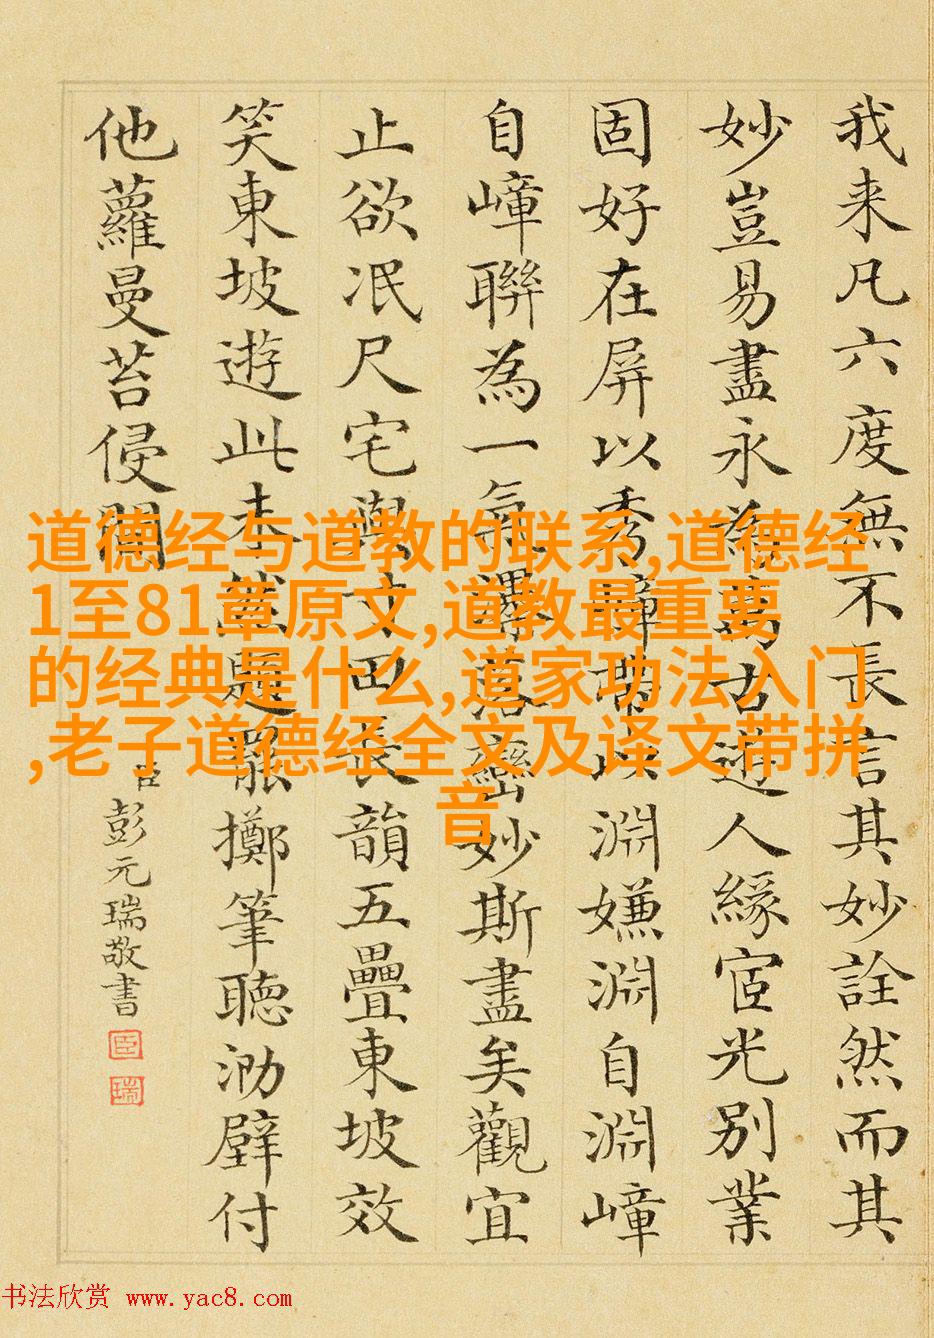 我来凡六度無不長言其妙詮然而其
妙豈易盡永為萬古遊人緣宧光別業
固好在屏以秀嶂帶以淵嫌淵自淵嶂
自嶂聯為一氣落巒妙斯盡矣觀宜
止欲泯尺宅與田長韻五疊東坡效
笑東坡遊此未然題罷擲筆聽泐壁付
他蘿曼苔侵
臣彭元瑞敬書
臣
瑞
道德经与道教的联系,道德经
1至81章原文,道教最重要
的经典是什么,道家功法入门
,老子道德经全文及译文带拼
音
书法欣赏 www.yac8.com